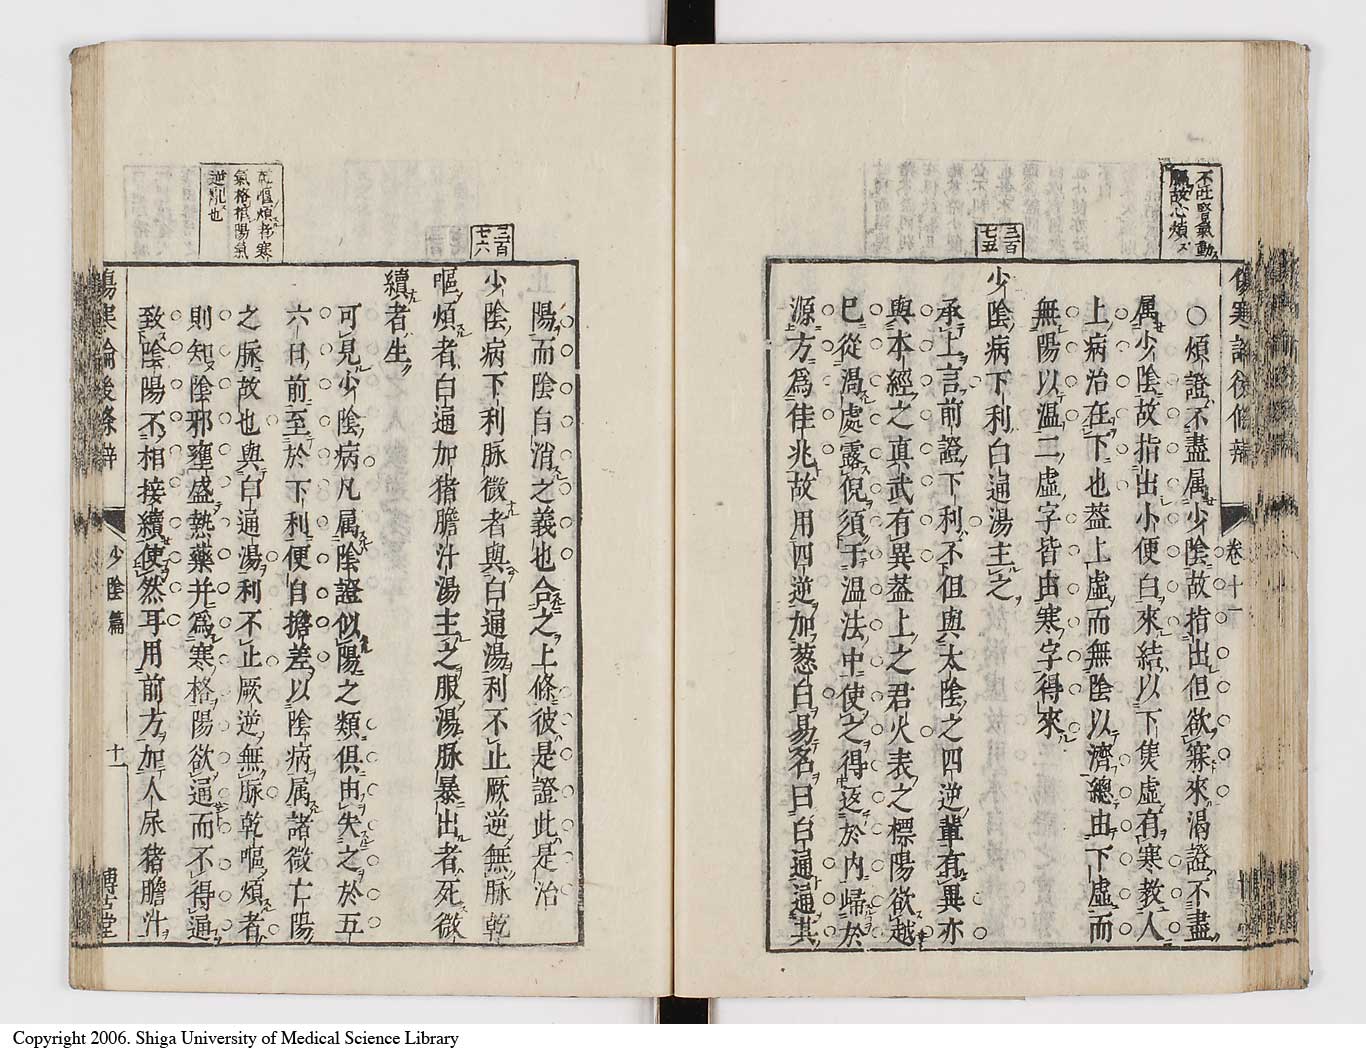 傷寒論後條辨
卷十一
不吐腎氣動
膈故心煩
○煩證不盡属少陰故指出但欲寐來渴證不盡
属少陰故指出小便白來結以下焦虚有寒教人
上病治在下也葢上虚而無陰以濟總由下虚而
無陽以温二虚字皆由寒字得來
三百七五
少陰病下利白通湯主之
承上言前證下利不但與太陰之四逆輩有異亦
與本經之真武有異葢上之君火表之標陽欲越
已從渴處露倪須于温法中使之得返於内歸於
源方爲佳兆故用四逆加葱白易名曰白通通其
陽而陰自消之義也合之上條彼是證此是治
三百七六
少陰病下利脉微者與白通湯利不止厥逆無脉乾
嘔煩者白通加猪膽汁湯主之服湯脉暴出者死微
續者生
乾嘔煩者寒
氣格拒陽氣
逆亂也
可見少陰病凡属陰證似陽之類俱由失之於五
六日前至於下利便自擔差以陰病属諸微亡陽
之脉故也與白通湯利不止厥逆無脉乾嘔煩者
則知陰邪壅盛熱藥并爲寒格陽欲通而不得通
致陰陽不相接續使然耳用前方加人尿猪膽汁
傷寒論後條辨
少陰篇
十
博古堂
Copyright 2006. Shiga University of Medical Science Library